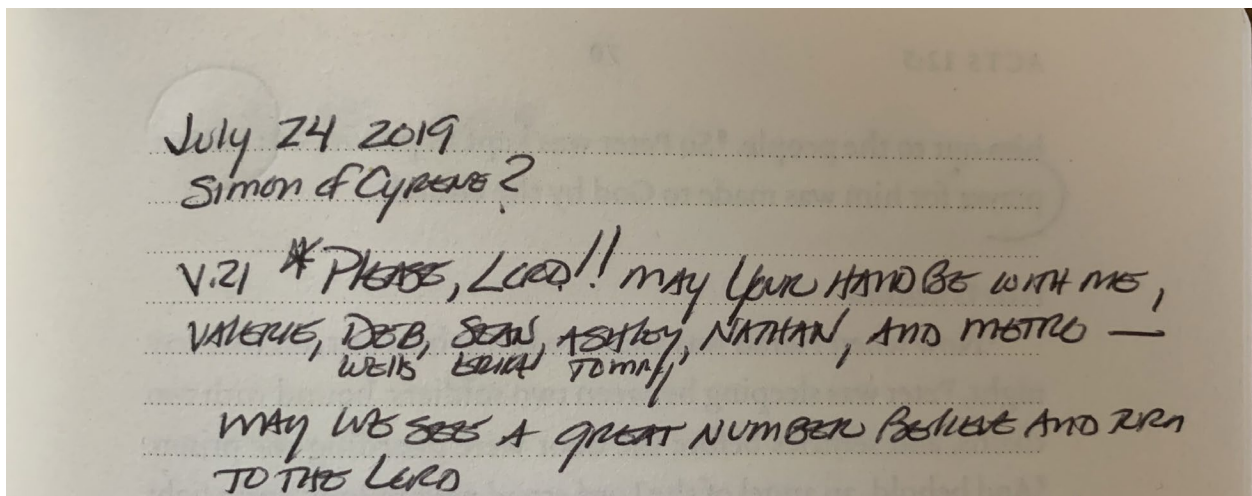 July 24 2019
Simon of Cyrene?
V.21 * Please, Lord!! May your hand be with me,
Valerie, Deb, Sean, Ashley, Nathan, and Metro —
Wells Erikh Tommy
May we see a great number believe and turn
to the Lord